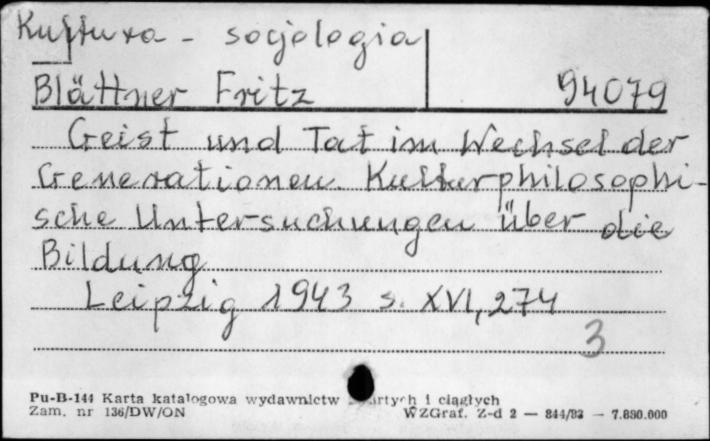 Kultura - socjologia
Blättner Fritz 94079
Geist und Tat im Wechsel der
Generationen. Kulturphilosophi-
sche Untersuchungen über die
Bildung
Leipzig 1943 s. XVI, 274
3
Pu-B-144 Karta katalogowa wydawnictw i ciągłych
Zam. nr 136/DW/ON WZGraf. Z-d 2 — 844/83 — 7.880.000